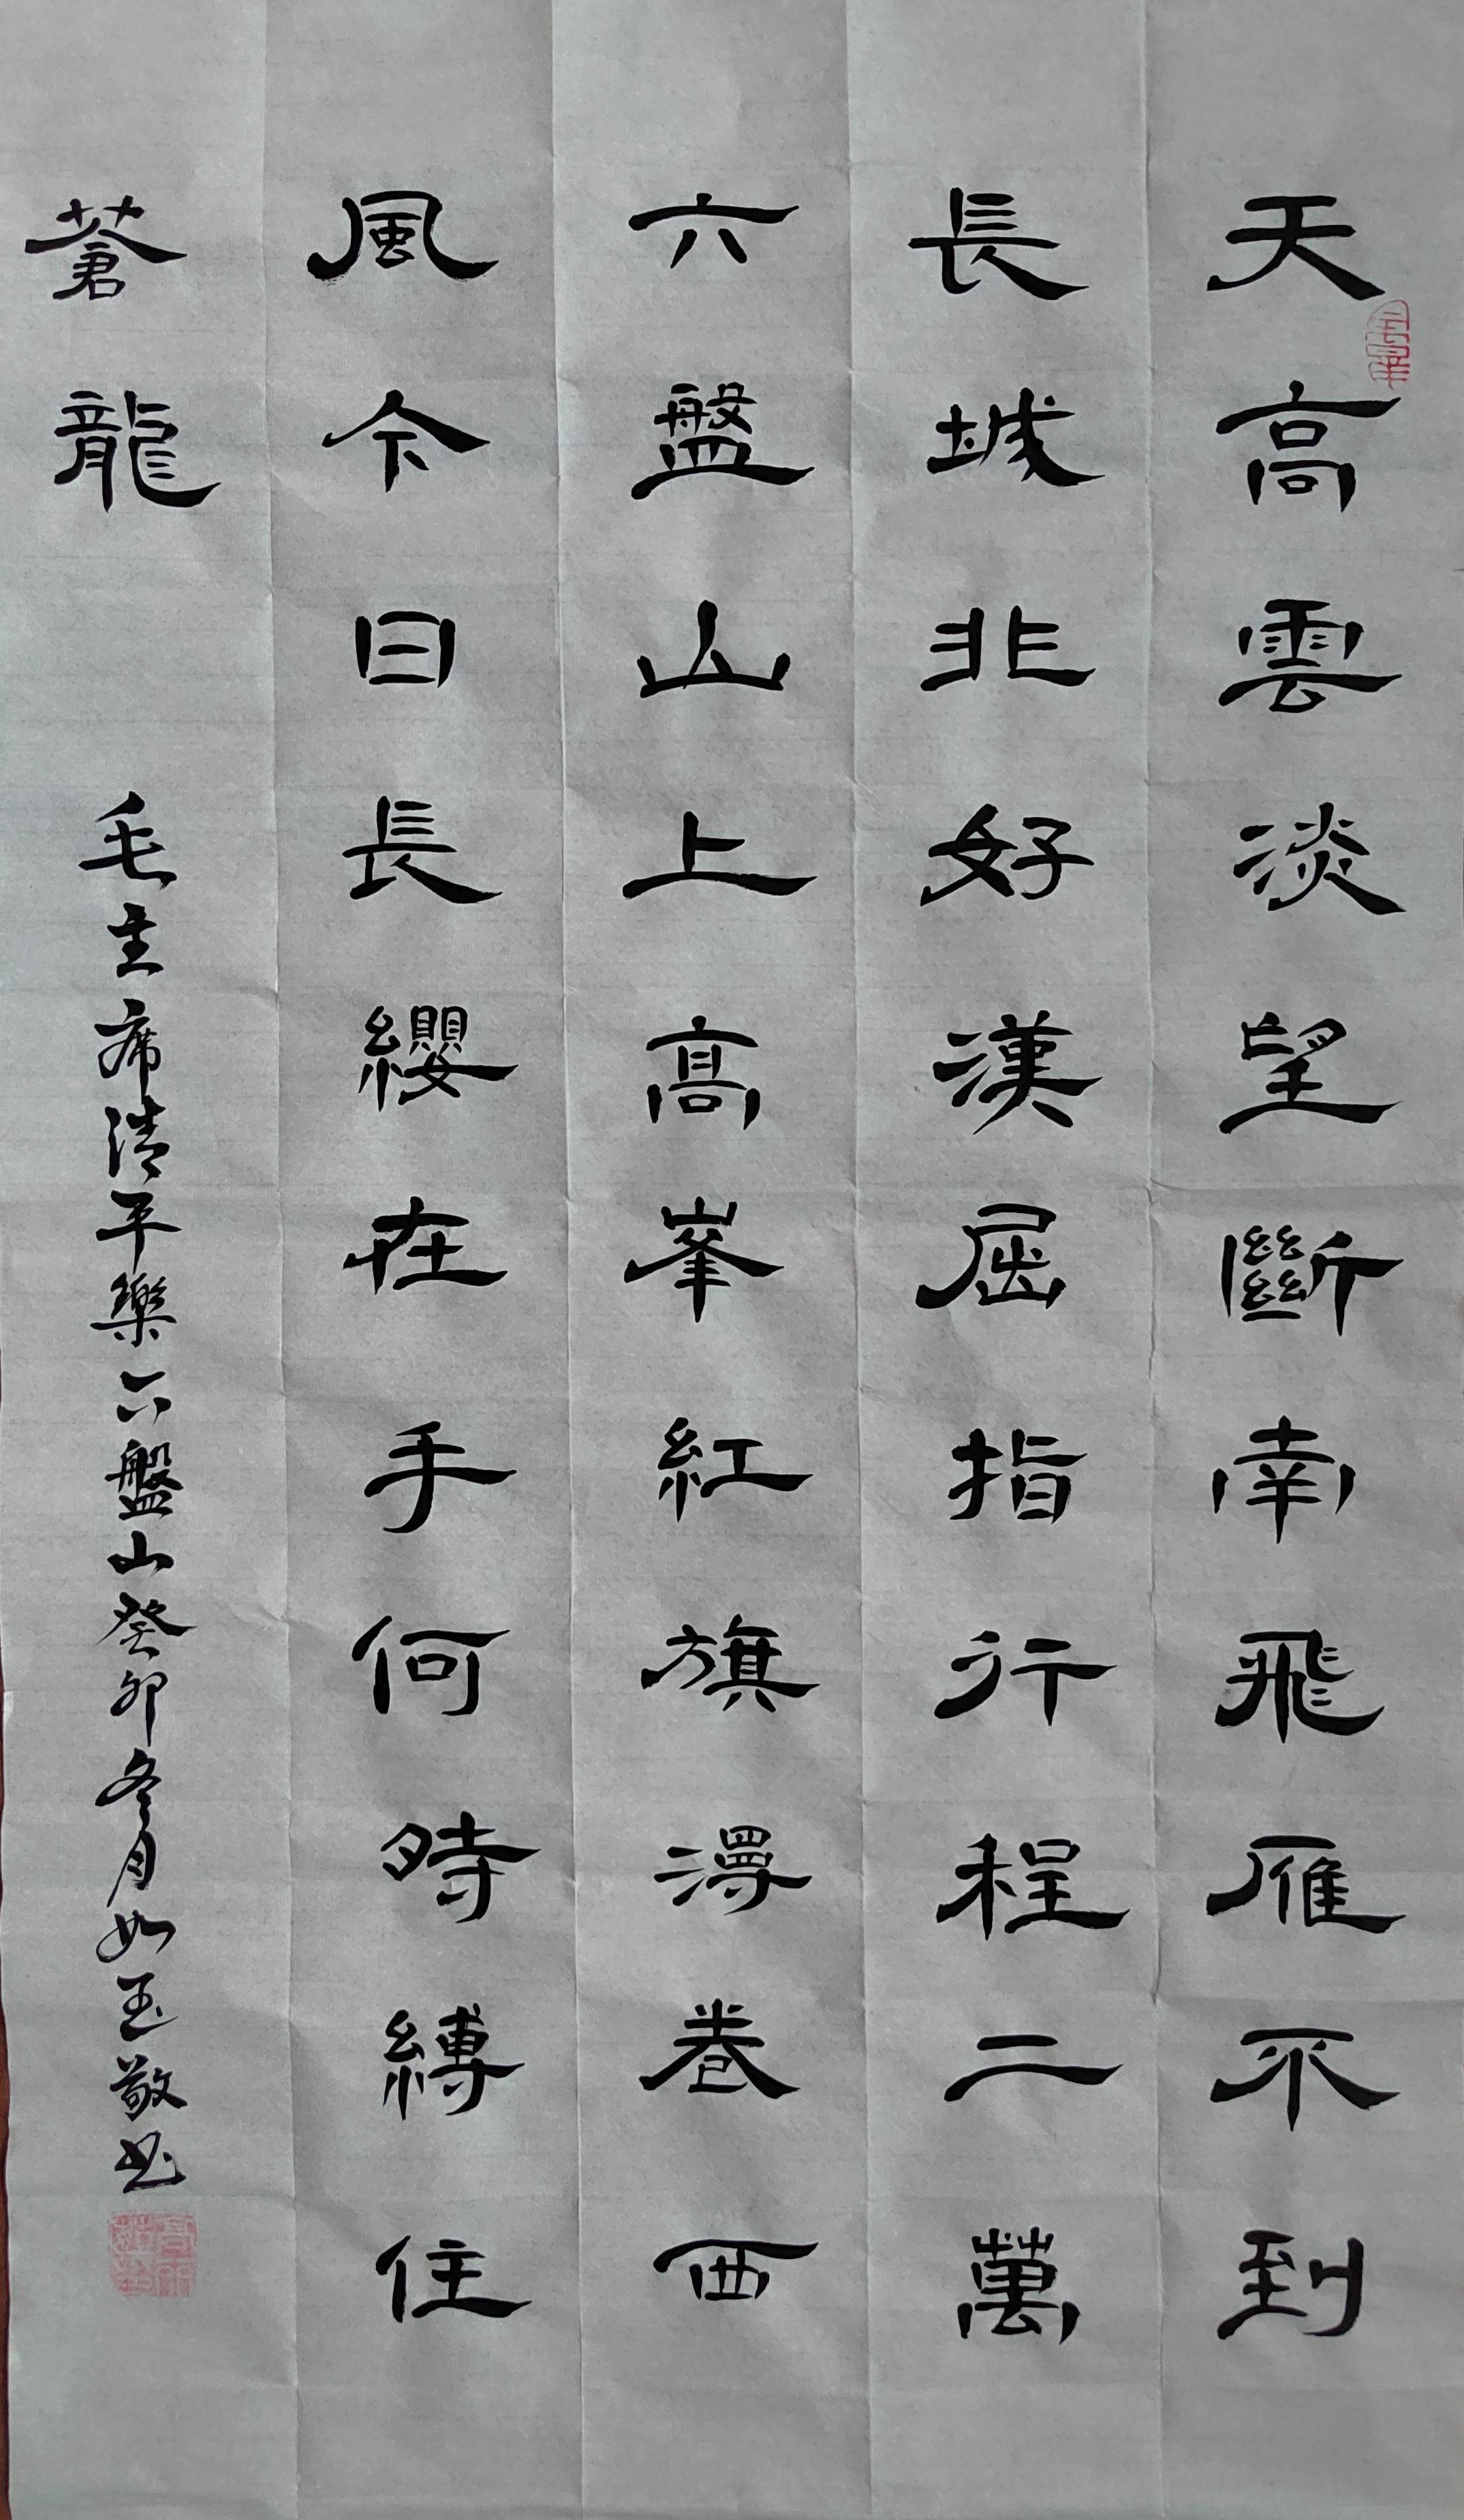 天高雲淡望斷南飛雁不到
長城非好漢屈指行程二萬
六盤山上高峯紅旗漫卷西
風今日長纓在手何時縛住
蒼龍
毛主席清平樂六盤山癸卯冬月如玉敬书